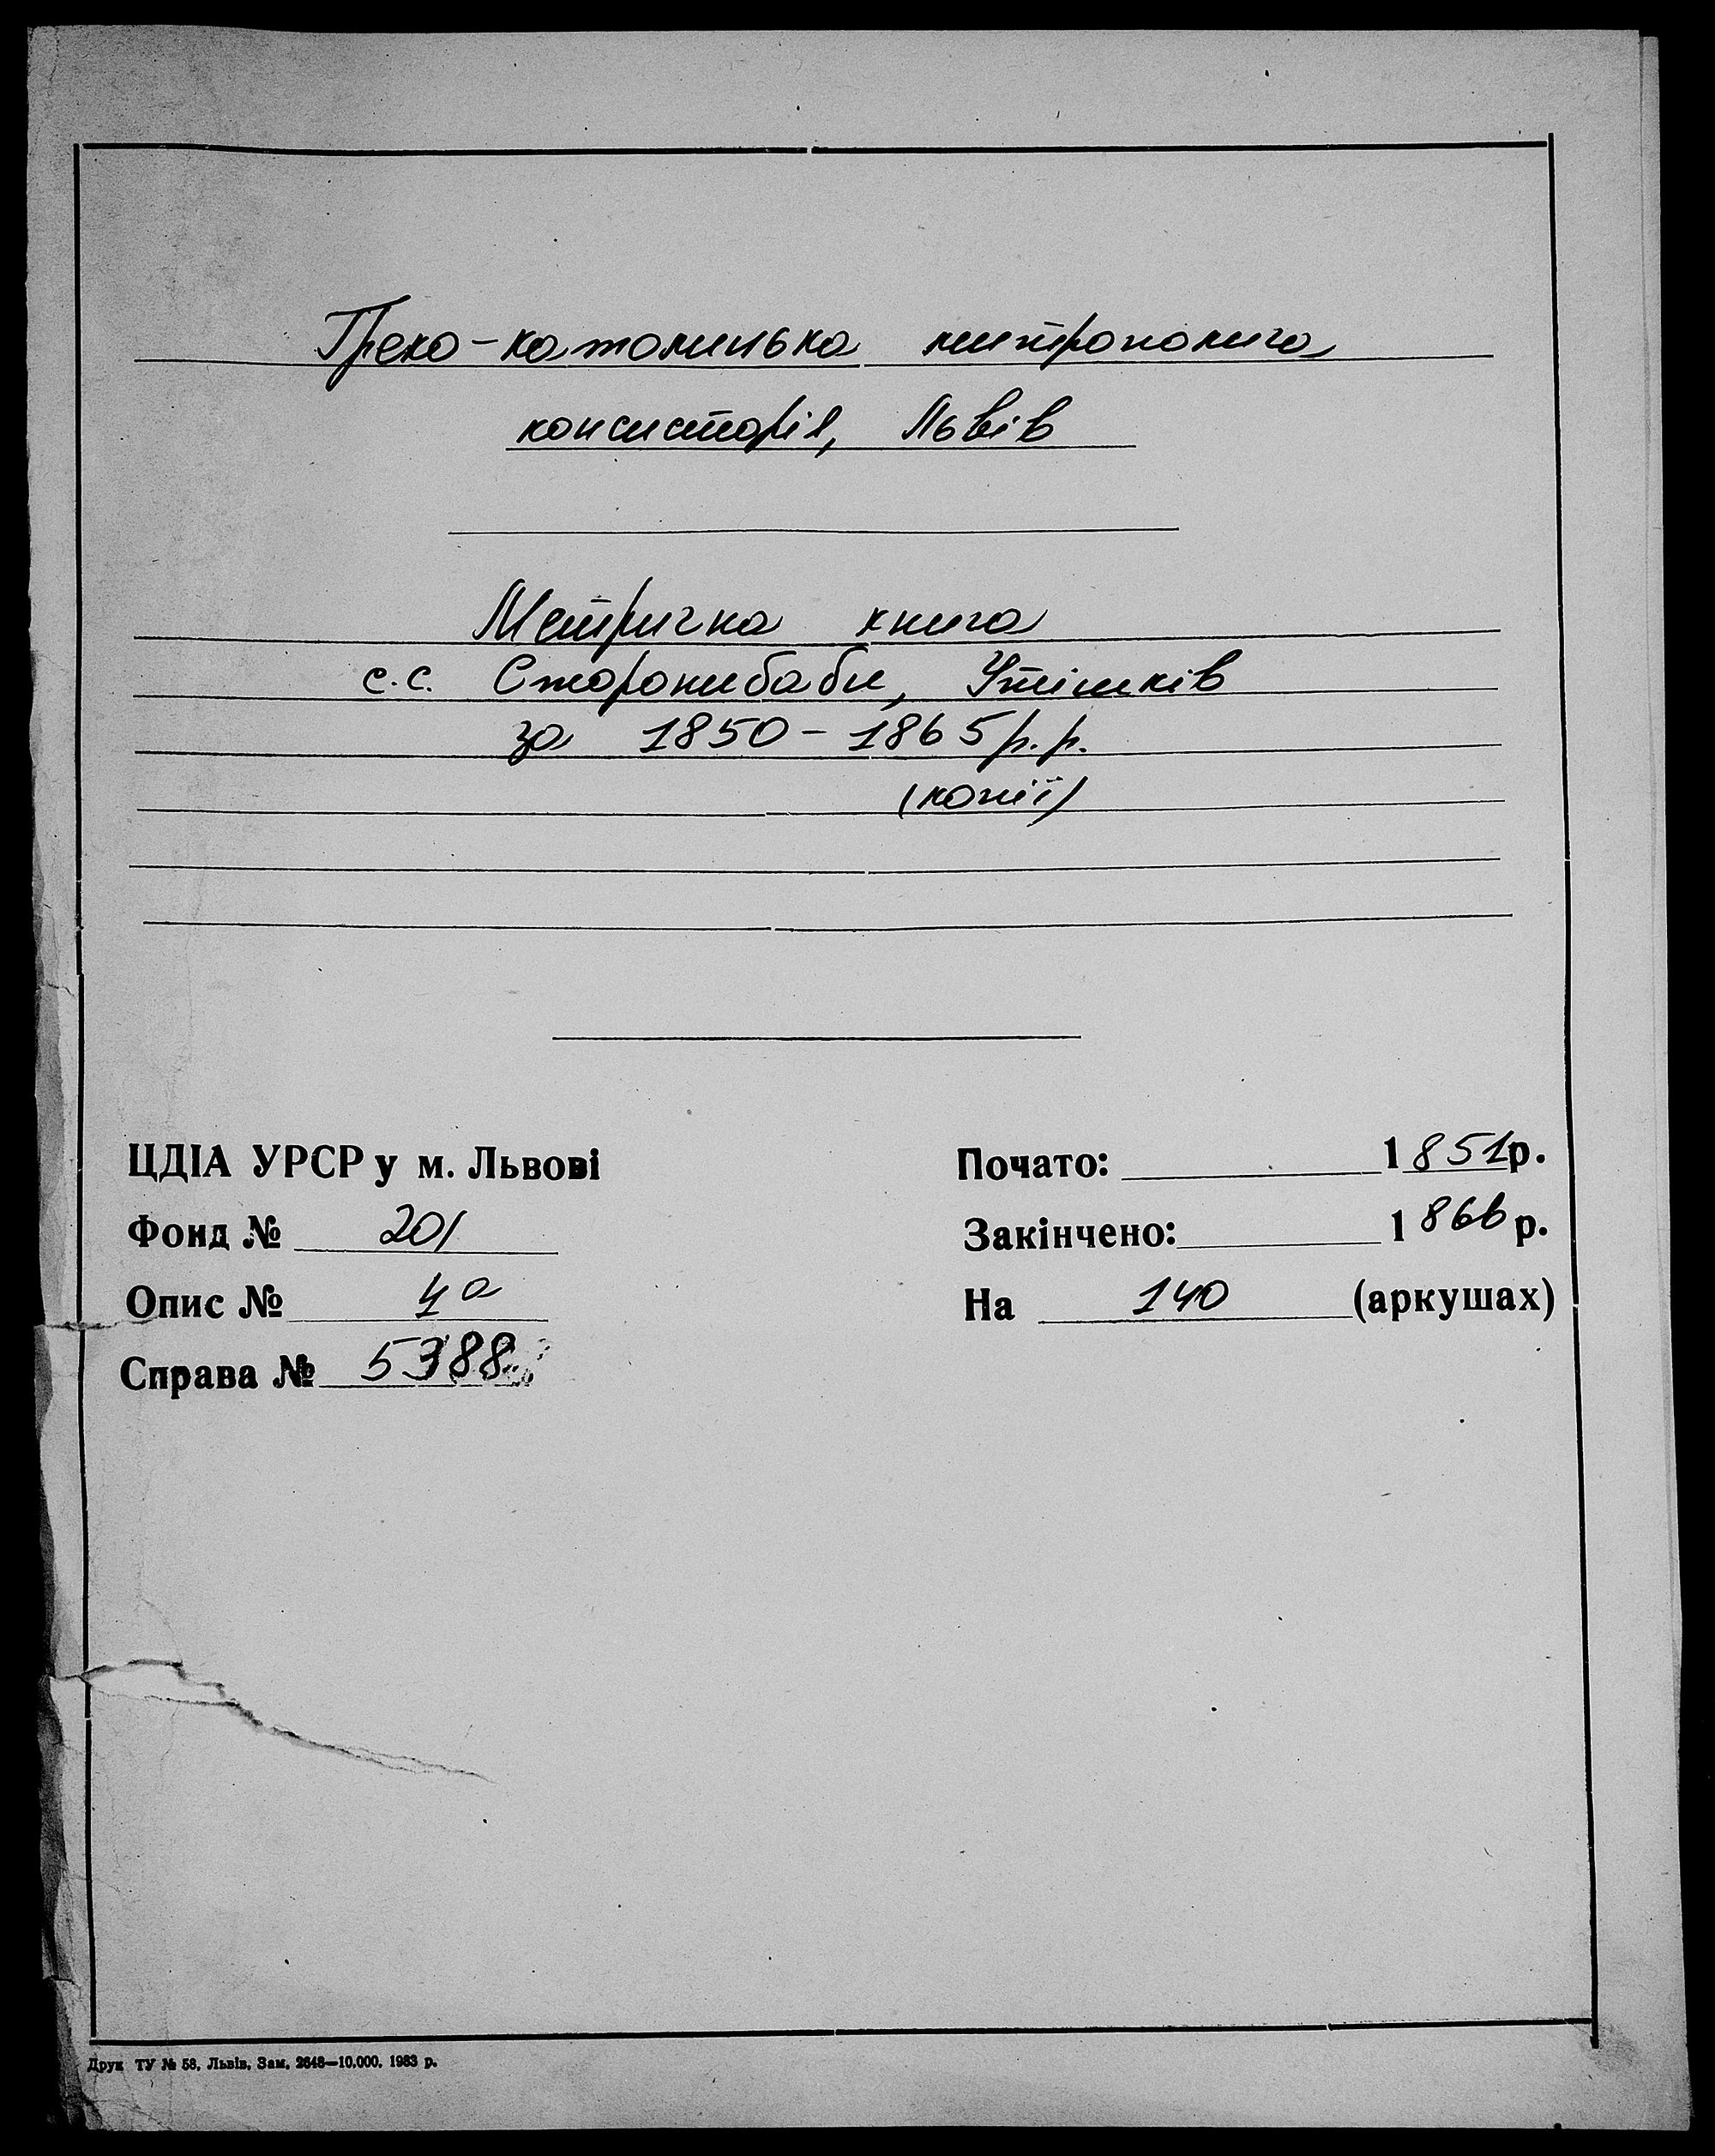 Греко-католицька митрополича
консисторія, Львів
Метрична книга
с.с. Сторонибаби, Утішків
за 1850-1865 р.р.
(копії)
ЦДІА УРСР у м. Львові
Почато: 1851р.
Фонд № 201
Закінчено: 1866 р.
Опис № 4а
На 140 (аркушах)
Справа № 5388
Друк ТУ № 58, Львів, Зам. 2648—10.000. 1983 р.